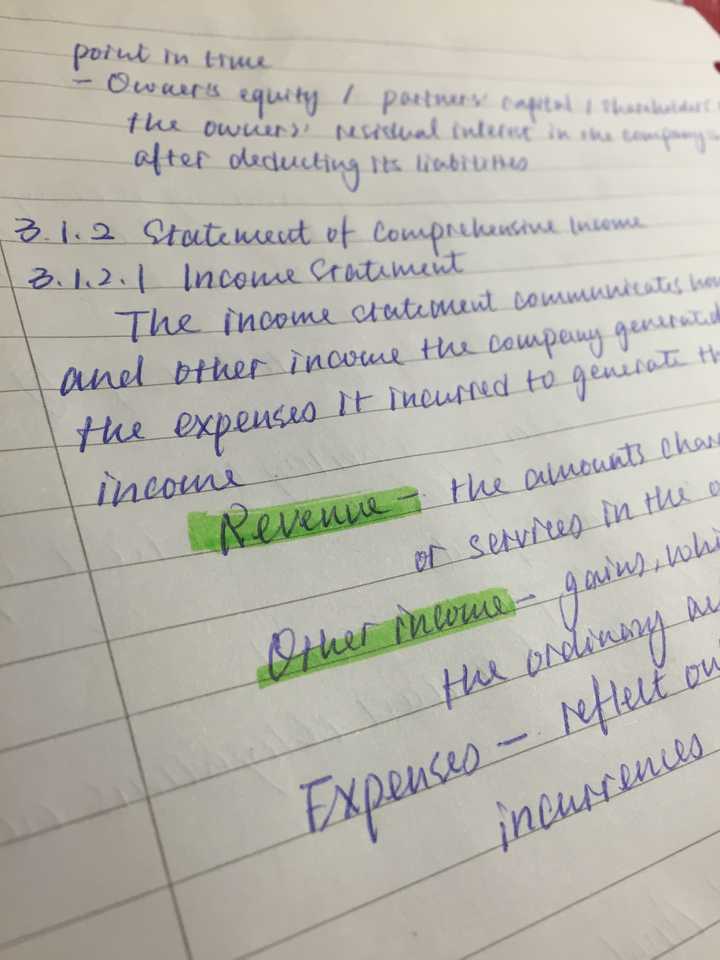 point in time
- Owner's equity / partners' capital / shareholders'
the owners' residual interest in the company's
after deducting its liabilities
3.1.2 Statement of Comprehensive Income
3.1.2.1 Income Statement
The income statement communicates how
and other income the company generated
the expenses it incurred to generate th
income
Revenue - the amounts char
or services in the o
Other income - gains, whi
the ordinary
Expenses - reflect ou
incurrences